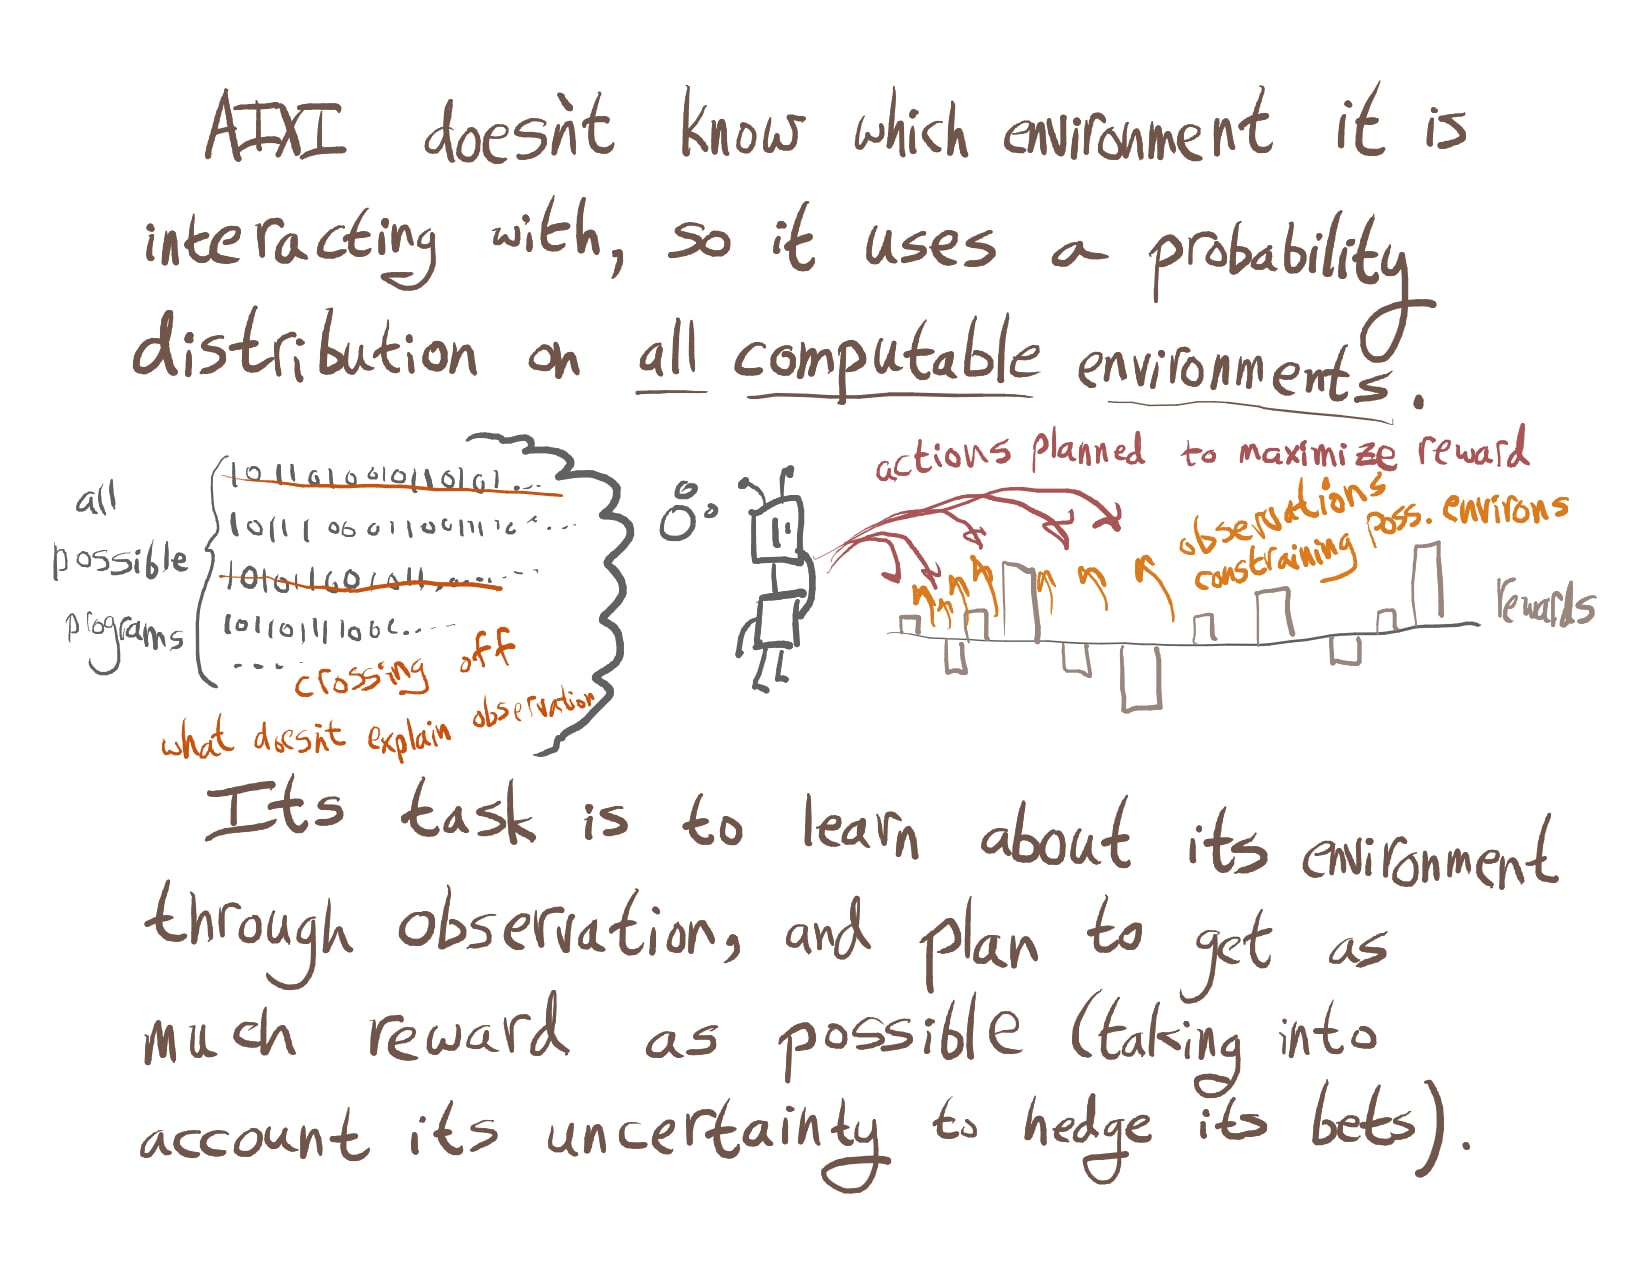 AIXI doesn't know which environment it is
interacting with, so it uses a probability
distribution on all computable environments.
all
possible
programs
crossing off
what doesn't explain observation
actions planned to maximize reward
observations
constraining poss. environs
rewards
Its task is to learn about its environment
through observation, and plan to get as
much reward as possible (taking into
account its uncertainty to hedge its bets).